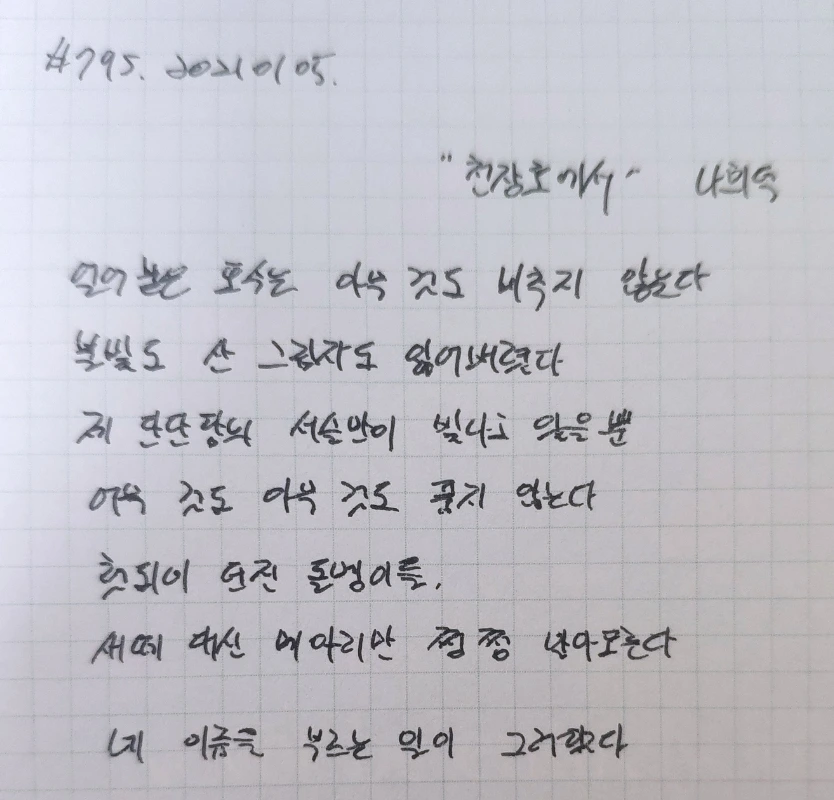 #795. 20210105.
"천장호에서" 나희덕
얼어붙은 호수는 아무 것도 비추지 않는다
불빛도 산 그림자도 잃어버렸다
제 단단함의 서슬만이 빛나고 있을 뿐
아무 것도 아무 것도 품지 않는다
헛되이 던진 돌멩이들,
새떼 대신 메아리만 쩡 쩡 날아오른다
네 이름을 부르는 일이 그러했다